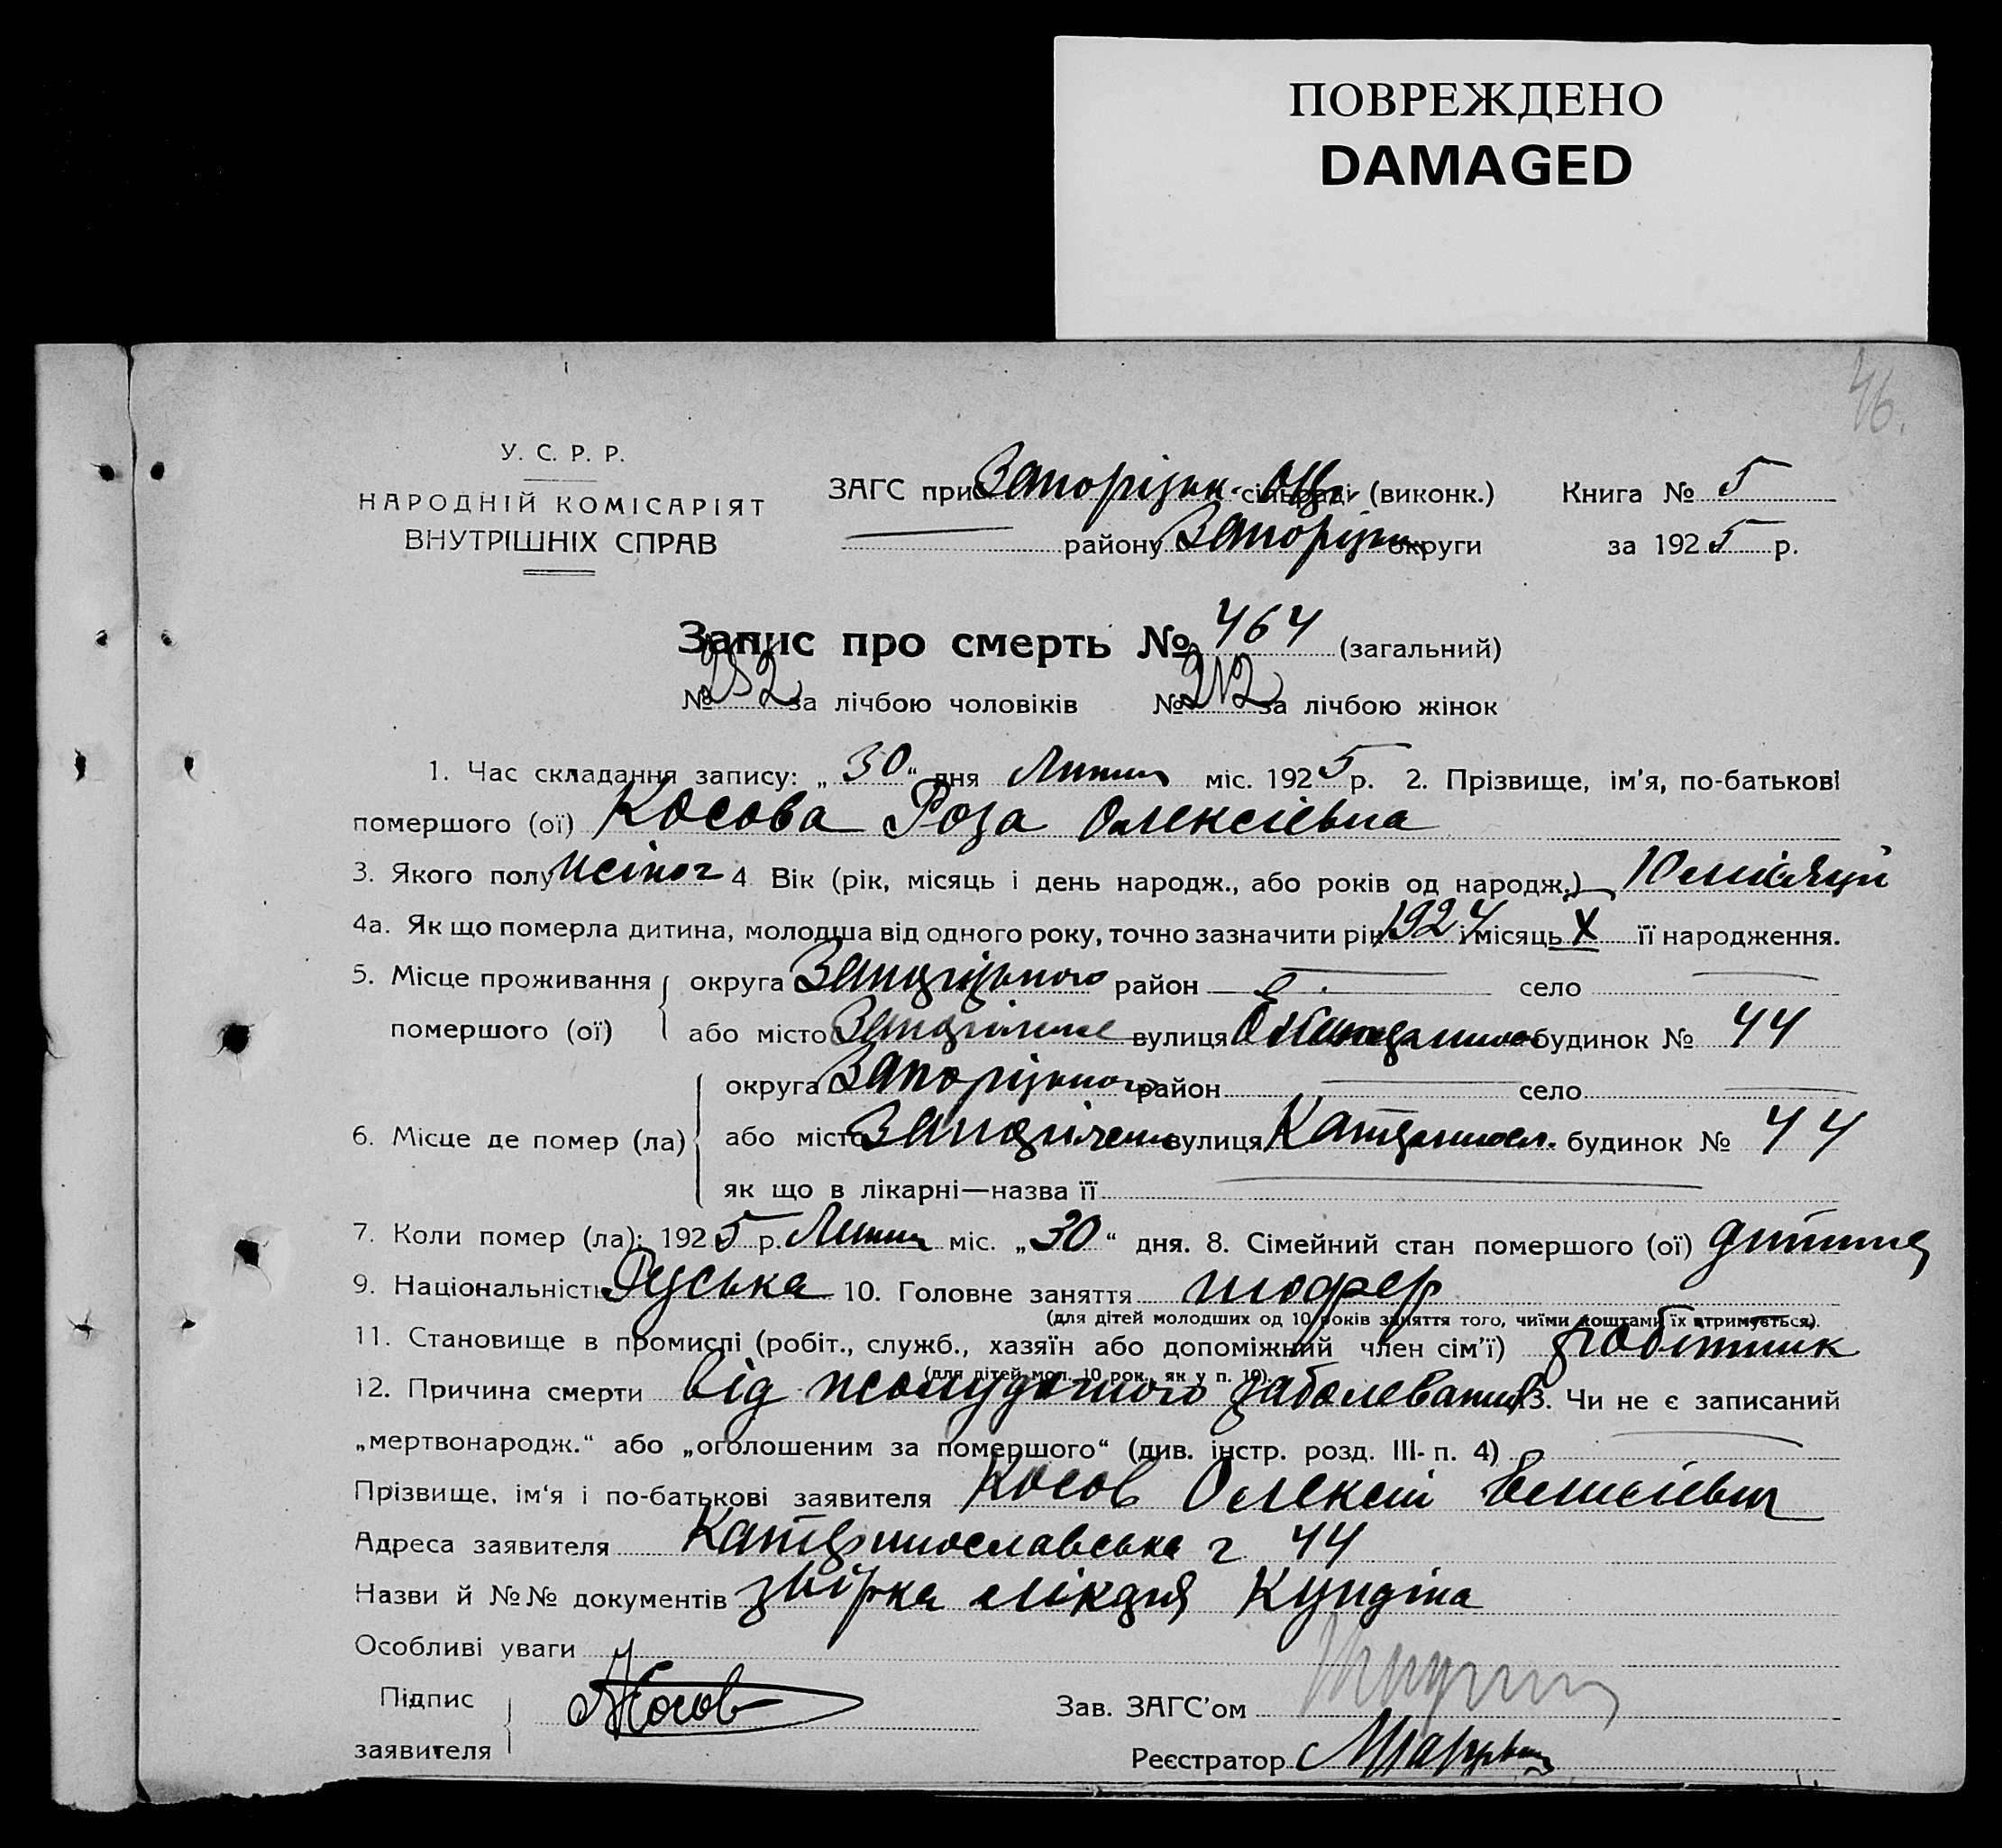 ПОВРЕЖДЕНО
DAMAGED
46.
У. С. Р. Р.
НАРОДНІЙ КОМІСАРІЯТ
ВНУТРІШНІХ СПРАВ
ЗАГС при Запорізьк. сільраді (виконк.) Книга № 5
району Запорізьк округи за 1925 р.
Запис про смерть № 464 (загальний)
№ 252 за лічбою чоловіків № 212 за лічбою жінок
1. Час складання запису: „30“ дня Липня міс. 1925 р. 2. Прізвище, ім'я, по-батькові
помершого (ої) Косова Роза Олексіевна
3. Якого полу жіноч 4 Вік (рік, місяць і день народж., або років од народж.) 10 місяців
4а. Як що померла дитина, молодша від одного року, точно зазначити рік 1924 і місяць X її народження.
5. Місце проживання округа Запорізького район село
помершого (ої) або місто Запоріжже вулиця будинок № 44
округа Запорізького район село
6. Місце де помер (ла) або місто вулиця Катериносл. будинок № 44
як що в лікарні—назва її
7. Коли помер (ла): 1925 р. Липня міс. „30“ дня. 8. Сімейний стан помершого (ої) дитина
9. Національність Руська 10. Головне заняття шофер
(для дітей молодших од 10 років заняття того, чиїми коштами їх утримується).
11. Становище в промислі (робіт., служб., хазяїн або допоміжний член сім'ї) робітник
(для дітей мол. 10 рок., як у п. 10).
12. Причина смерти від жолудочного заболевания 13. Чи не є записаний
„мертвонародж.“ або „оголошеним за помершого“ (див. інстр. розд. III- п. 4)
Прізвище, ім'я і по-батькові заявителя Косов Олексій
Адреса заявителя Катеринославська 2 44
Назви й №№ документів лікаря
Особливі уваги
Підпис Косов Зав. ЗАГС'ом
заявителя Реєстратор